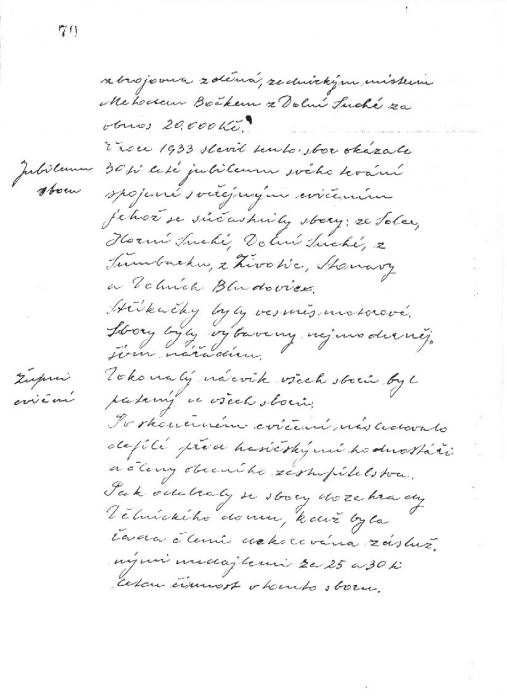 70
zbrojovna zděná, zednickým mistrem
Methodem Bočkem z Dolní Suché za
obnos 20.000 Kč.
V roce 1933 slavil tento sbor okázale
Jubileum
sboru
30ti leté jubileum svého trvání
spojené s veřejným cvičením
jehož se súčastnily sbory: ze
Horní Suché, Dolní Suché, z
Šumbarku, z Životic, Stonavy
a Dolních Bludovic.
Stříkačky byly vesměs motorové.
Sbory byly vybaveny nejmoderněj-
ším nářadím.
Župní
cvičení
Dokonalý nácvik všech sborů byl
patrný u všech sborů.
Po skončeném cvičení následovalo
defilé před hasičskými hodnostáři
a členy obecního zastupitelstva.
Pak odebraly se sbory do zahrady
Dělnického domu, kdež byla
řada členů dekorována zásluž-
nými medajlemi za 25 a 30 ti
letou činnost v tomto sboru.